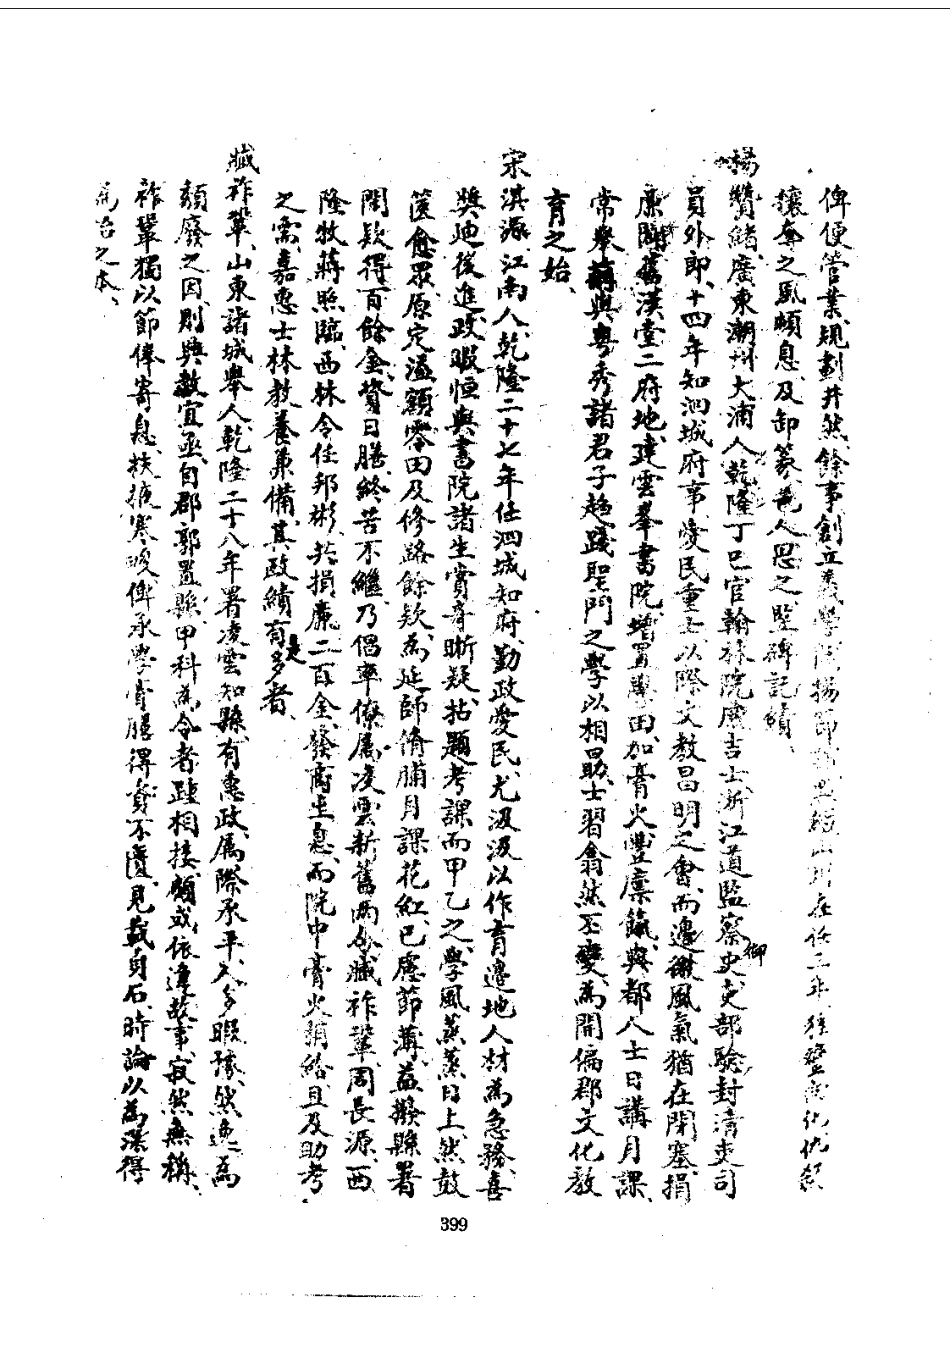 俾便管業、規劃井然、餘事創立義學
攘奪之風頓息、及卸篆、邑人思之、豎碑記績、
楊贊緒、廣東潮州大浦人、乾隆丁巳官翰林院庶吉士、浙江道監察御史、吏部驗封清吏司
員外郎、十四年知泗城府事、愛民重士、以際文教昌明之會、而邊徼風氣猶在閉塞、捐
廉闢舊漢堂二府地、建雲峯書院、增置學田、加膏火、豐廩餼、與都人士日講月課、
常舉與粵秀諸君子趨踐聖門之學以相勗、士習翕然丕變、為開偏郡文化教
育之始、
宋淇源、江南人、乾隆二十七年任泗城知府、勤政愛民、尤汲汲以作育邊地人材為急務、喜
奬廸後進、政暇恒與書院諸生賞奇晰疑、拈題考課而甲乙之、學風蒸蒸日上、然鼓
篋愈眾、原定溢額零田及修路餘欵、為延師脩脯月課花紅、已應節薄、益撥縣署
閒欵得百餘金、貲日勝、終苦不繼、乃倡率僚屬、凌雲新舊兩令臧祚鞏、周長源、西
隆牧蔣照臨、西林令任邦彬、共損廉二百金、發商生息、而院中膏火賴給、且及助考
之需、嘉惠士林、教養兼備、其政績有足多者、
臧祚鞏、山東諸城舉人、乾隆二十八年署凌雲知縣、有惠政、属際承平、人多暇豫、然邑為
頹廢之因、則與教宜亟、自郡郭置縣、甲科為令者踵相接、顧或依違故事、寂然無稱、
祚鞏獨以節俸寄息、扶掖寒畯、俾承學膏腴、得資不匱、見載貞石、時論以為深得
為治之本、
399